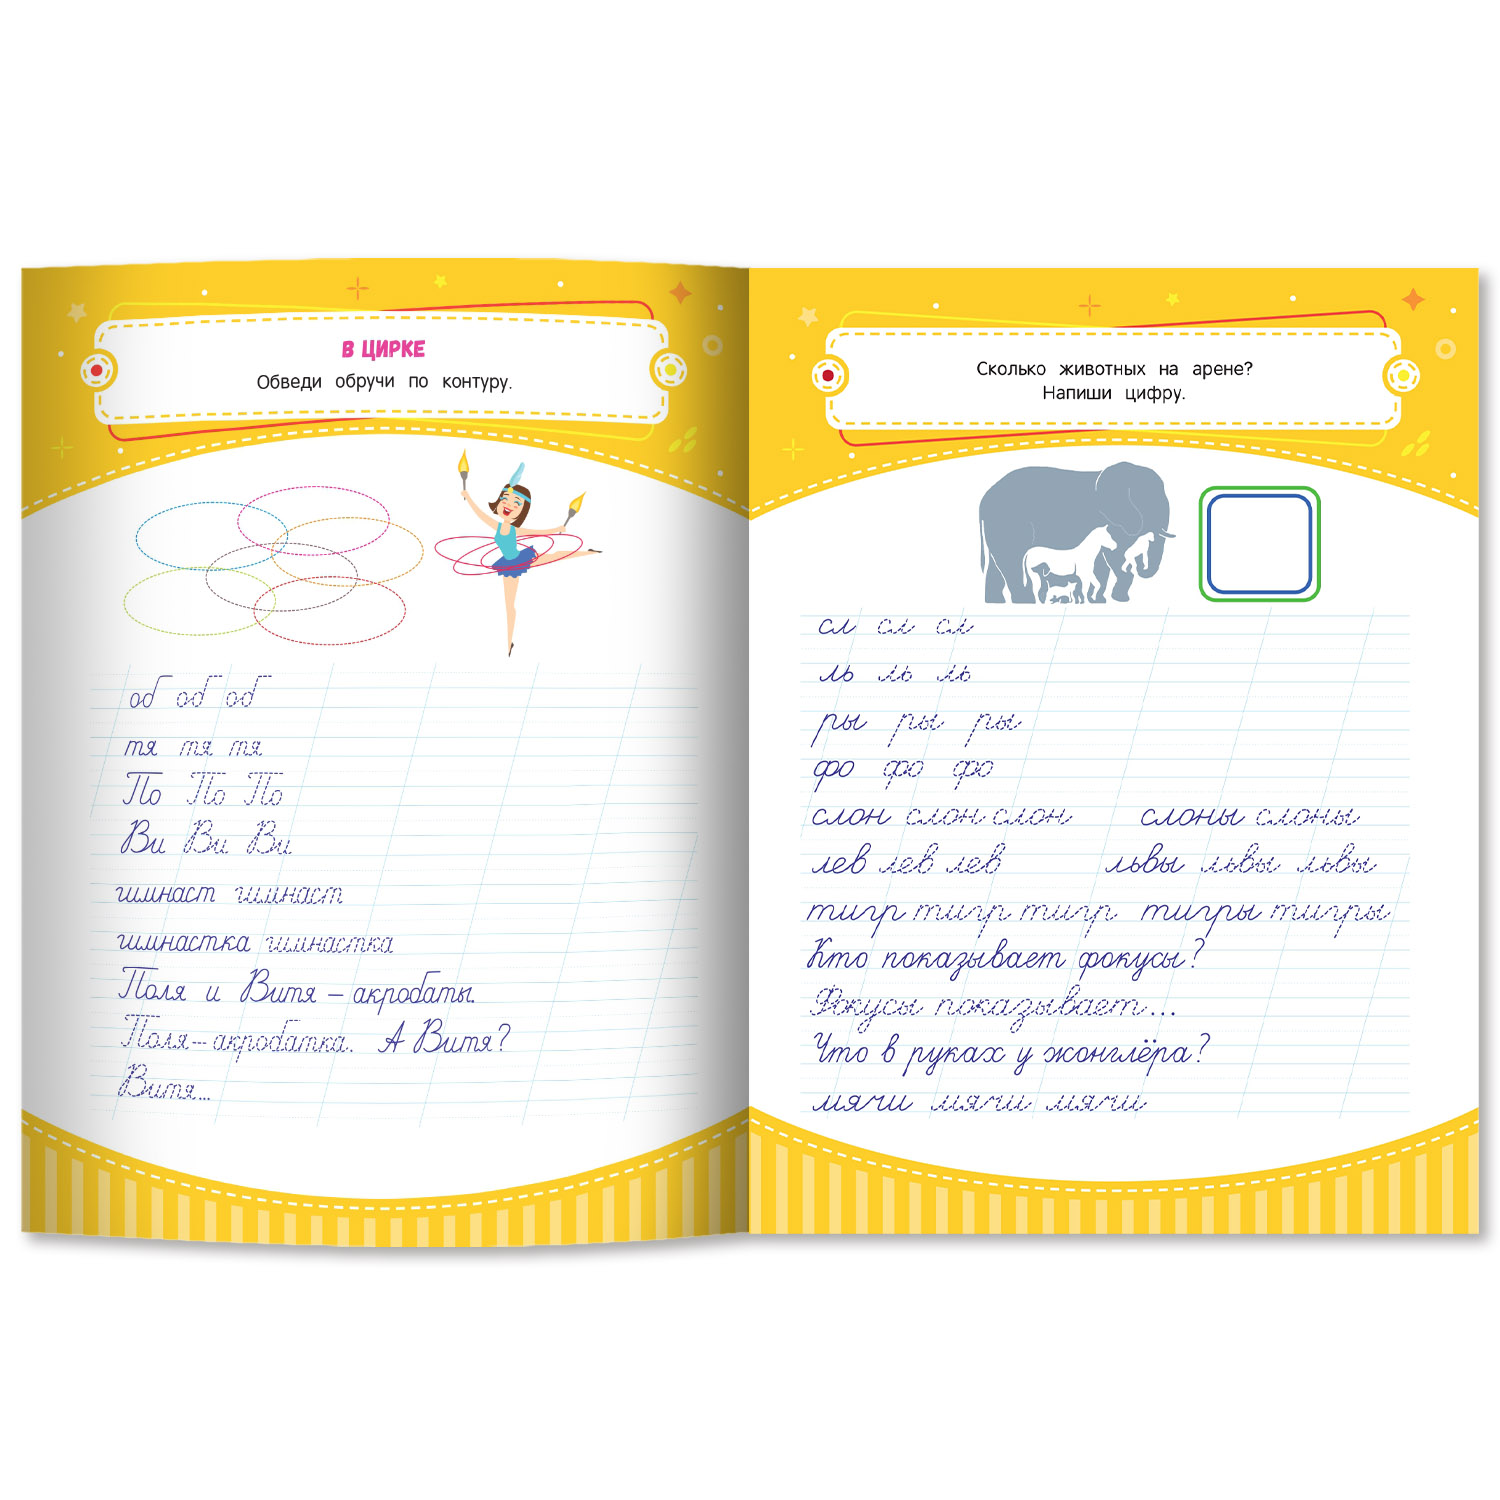 В ЦИРКЕ
Обведи обручи по контуру.
об об об
тя тя тя
По По По
Ви Ви Ви
гимнаст гимнаст
гимнастка гимнастка
Поля и Витя – акробаты.
Поля – акробатка. А Витя?
Витя...
Сколько животных на арене?
Напиши цифру.
сл сл сл
ль ль ль
ры ры ры
фо фо фо
слон слон слон слоны слоны
лев лев лев львы львы львы
тигр тигр тигр тигры тигры
Кто показывает фокусы?
Фокусы показывает...
Что в руках у жонглёра?
мячи мячи мячи